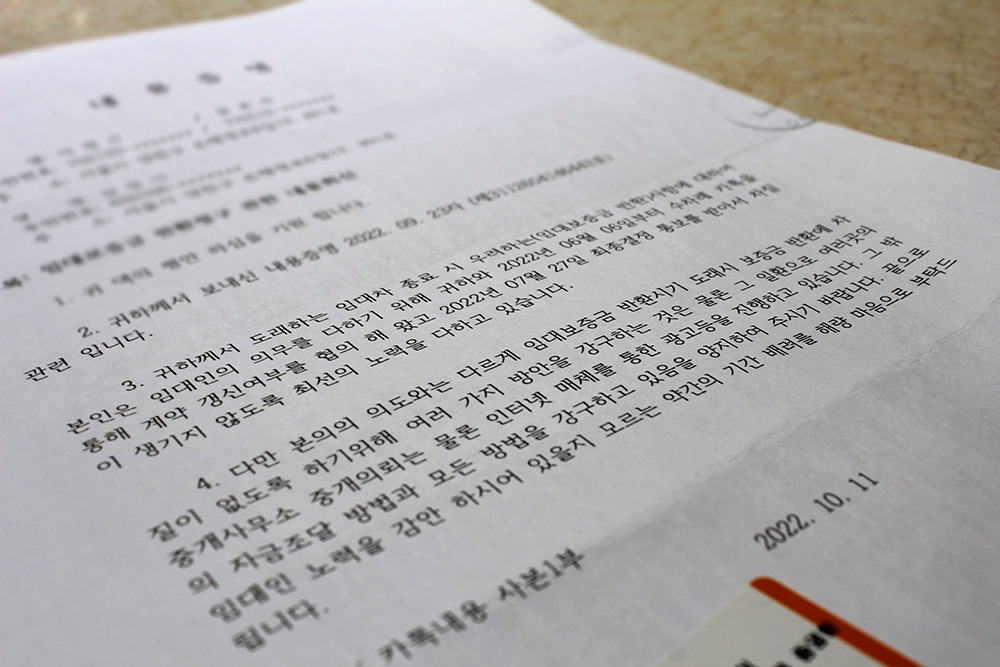 내 용 증 명
임대보증금 반환청구 관련 내용회신
1. 귀 댁의 평안 하심을 기원 합니다.
2. 귀하께서 보내신 내용증명 2022. 09. 23자
관련 입니다.
3. 귀하께서 도래하는 임대차 종료 시 우려하는(임대보증금 반환)사항에 대하여
본인은 임대인의 의무를 다하기 위해 귀하와 2022년 06월 06일부터 수차례 카톡을
통해 계약 갱신여부를 협의 해 왔고 2022년 07월 27일 최종결정 통보를 받아서 차질
이 생기지 않도록 최선의 노력을 다하고 있습니다.
4. 다만 본의의 의도와는 다르게 임대보증금 반환시기 도래시 보증금 반환에 차
질이 없도록 하기위해 여러 가지 방안을 강구하는 것은 물론 그 일환으로 여러곳의
중개사무소 중개의뢰는 물론 인터넷 매체를 통한 광고등을 진행하고 있습니다. 그 밖
의 자금조달 방법과 모든 방법을 강구하고 있음을 양지하여 주시기 바랍니다. 끝으로
임대인 노력을 감안 하시어 있을지 모르는 약간의 기간 배려를 해량 마음으로 부탁드
립니다.
카톡내용 사본1부
2022. 10. 11